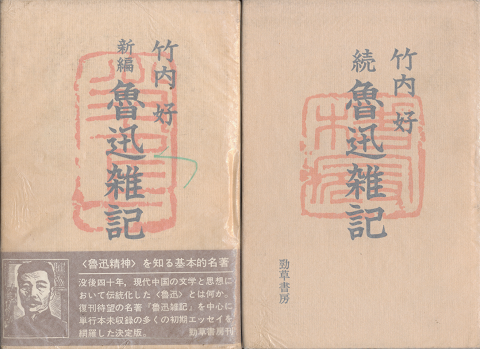 竹内 好
新編
魯迅雑記
〈魯迅精神〉を知る基本的名著
没後四十年。現代中国の文学と思想に
おいて伝統化した〈魯迅〉とは何か。
復刊待望の名著「魯迅雑記」を中心に
単行本未収録の多くの初期エッセイを
網羅した決定版。
勁草書房刊
竹内 好
続
魯迅雑記
勁草書房